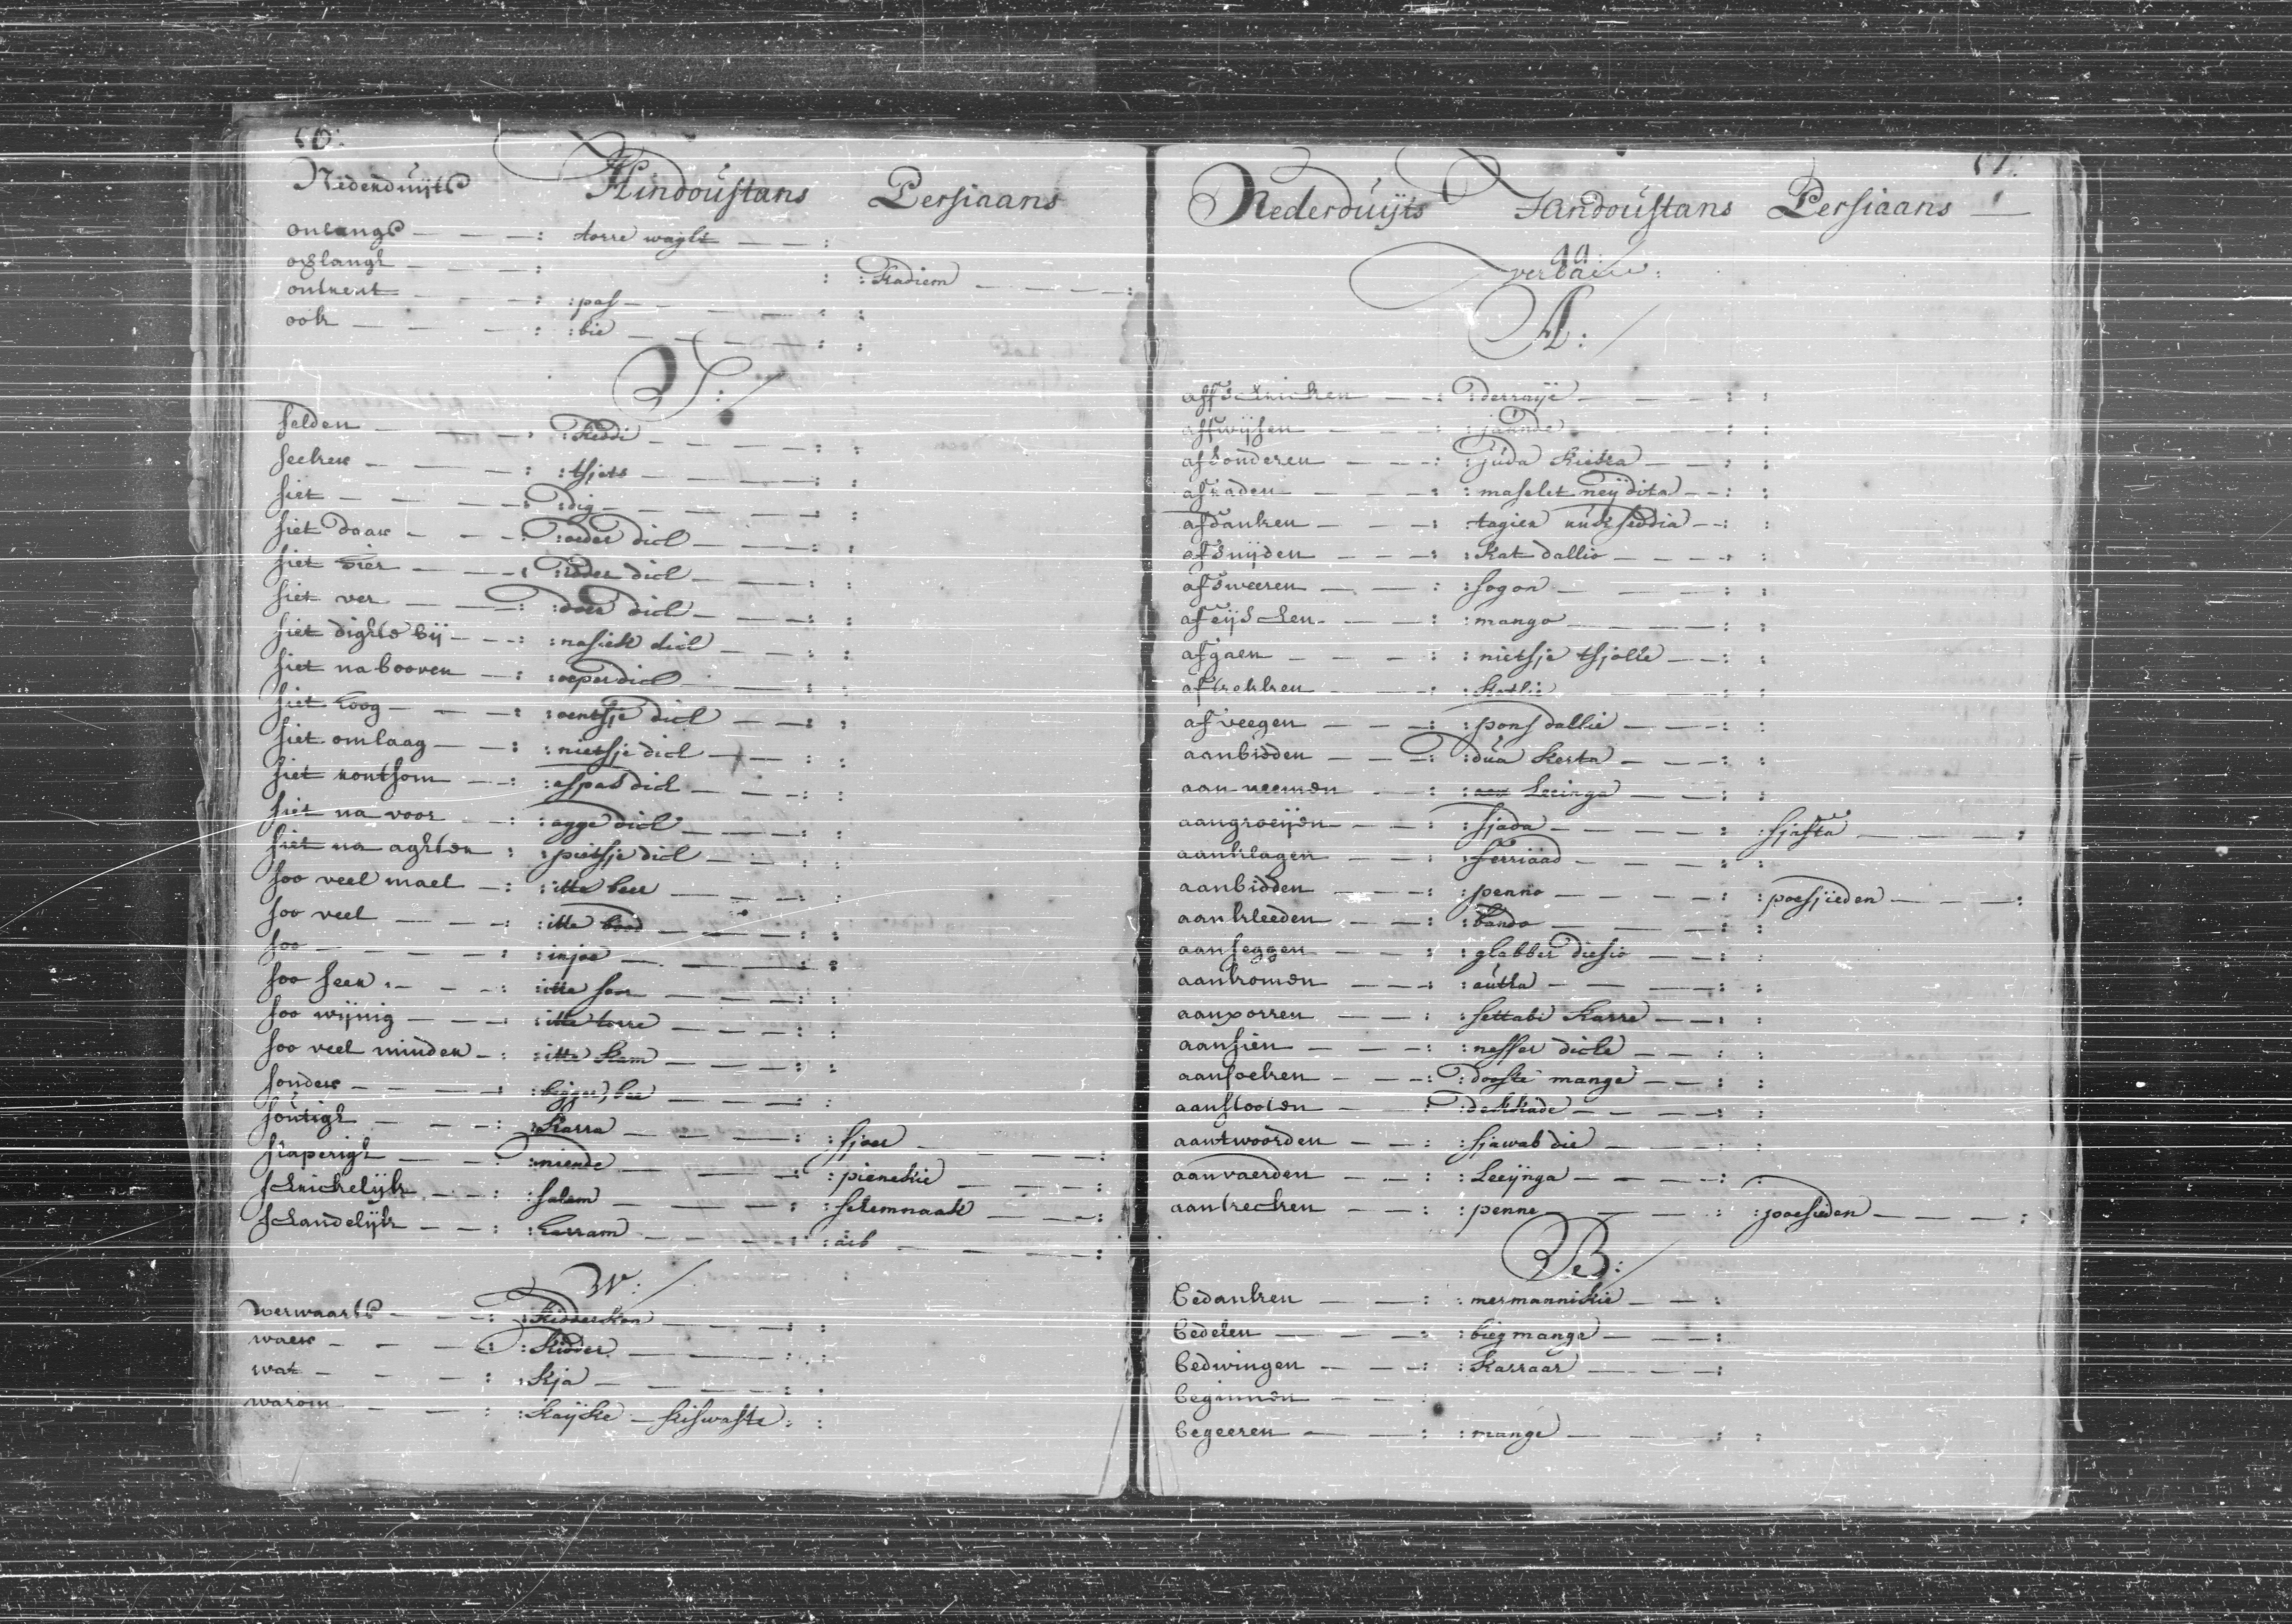 50:
Nederduijts Hindoustans Persiaans
onlangs : torre waght :
oslangh : : : Kadiem :
ontrent : : pas : :
ook : : bie : :
S:
selden : Keddi : :
seeker : : tsjets : :
siet : : dig : :
siet daar : : oeder dick : :
siet hier : : idder dick : :
siet ver : : doer dick : :
siet dights bij : : nasiek dick : :
siet na booven : : oeper dick : :
siet hoog : : oentsje dick : :
siet omlaag : : nietsje dick : :
siet rontsom : : aspas dick : :
siet na voor : : agge dick : :
siet na aghter : : pietsje dick : :
soo veel mael : : itte beer : :
soo veel : : itte : :
soo : : injoe : :
soo seer : : itte soor : :
soo wijnig : : itte torre : :
soo veel minder : : itte kam : :
sonder : : bigger, bee : :
soutigh : : Karra : : sjoer :
slaperigh : : niende : : pienekie :
schrickelijk : : salem : : selemnaak :
schandelijk : : harram : : aib :
W:
werwaarts : : Kidderkon : :
waer : : Kidder : :
wat : : Kja : :
warom : : Kaijke – kiswaste : :
51:
Nederduijts Handoustans Persiaans
verba
A:
affschricken : : derraije : :
affwijsen : : jaande : :
afsonderen : : juda kieka : :
afraden : : maselet neij dita : :
afdanken : tagier : :
afsnijden : : Kat dallio : :
afsweeren : : sogon : :
afeijschen : : mango : :
afgaen : : nietsje tsjolle : :
aftrekken : : : :
afveegen : : pons dallie : :
aanbidden : : dua kerta : :
aanneemen : : Leeinga : :
aangroeijen : : sjada : : sjasta :
aanklagen : : ferriaad : :
aanbidden : : penno : : poesjieden :
aankleeden : : bando : :
aanseggen : : ghabber diesio : :
aankomen : : autha : :
aanporren : : settabi karre : :
aansien : : nesser dicke : :
aansoeken : : dooste mange : :
aanstooten : : dekkade : :
aantwoorden : : sjawab die : :
aanvaerden : : Leeijnga : :
aantrecken : : penne : : poesieden :
B:
bedanken : : mermannikie :
bedelen : : bieg mange :
bedwingen : : Karraar :
beginnen :
begeeren : : mange : :